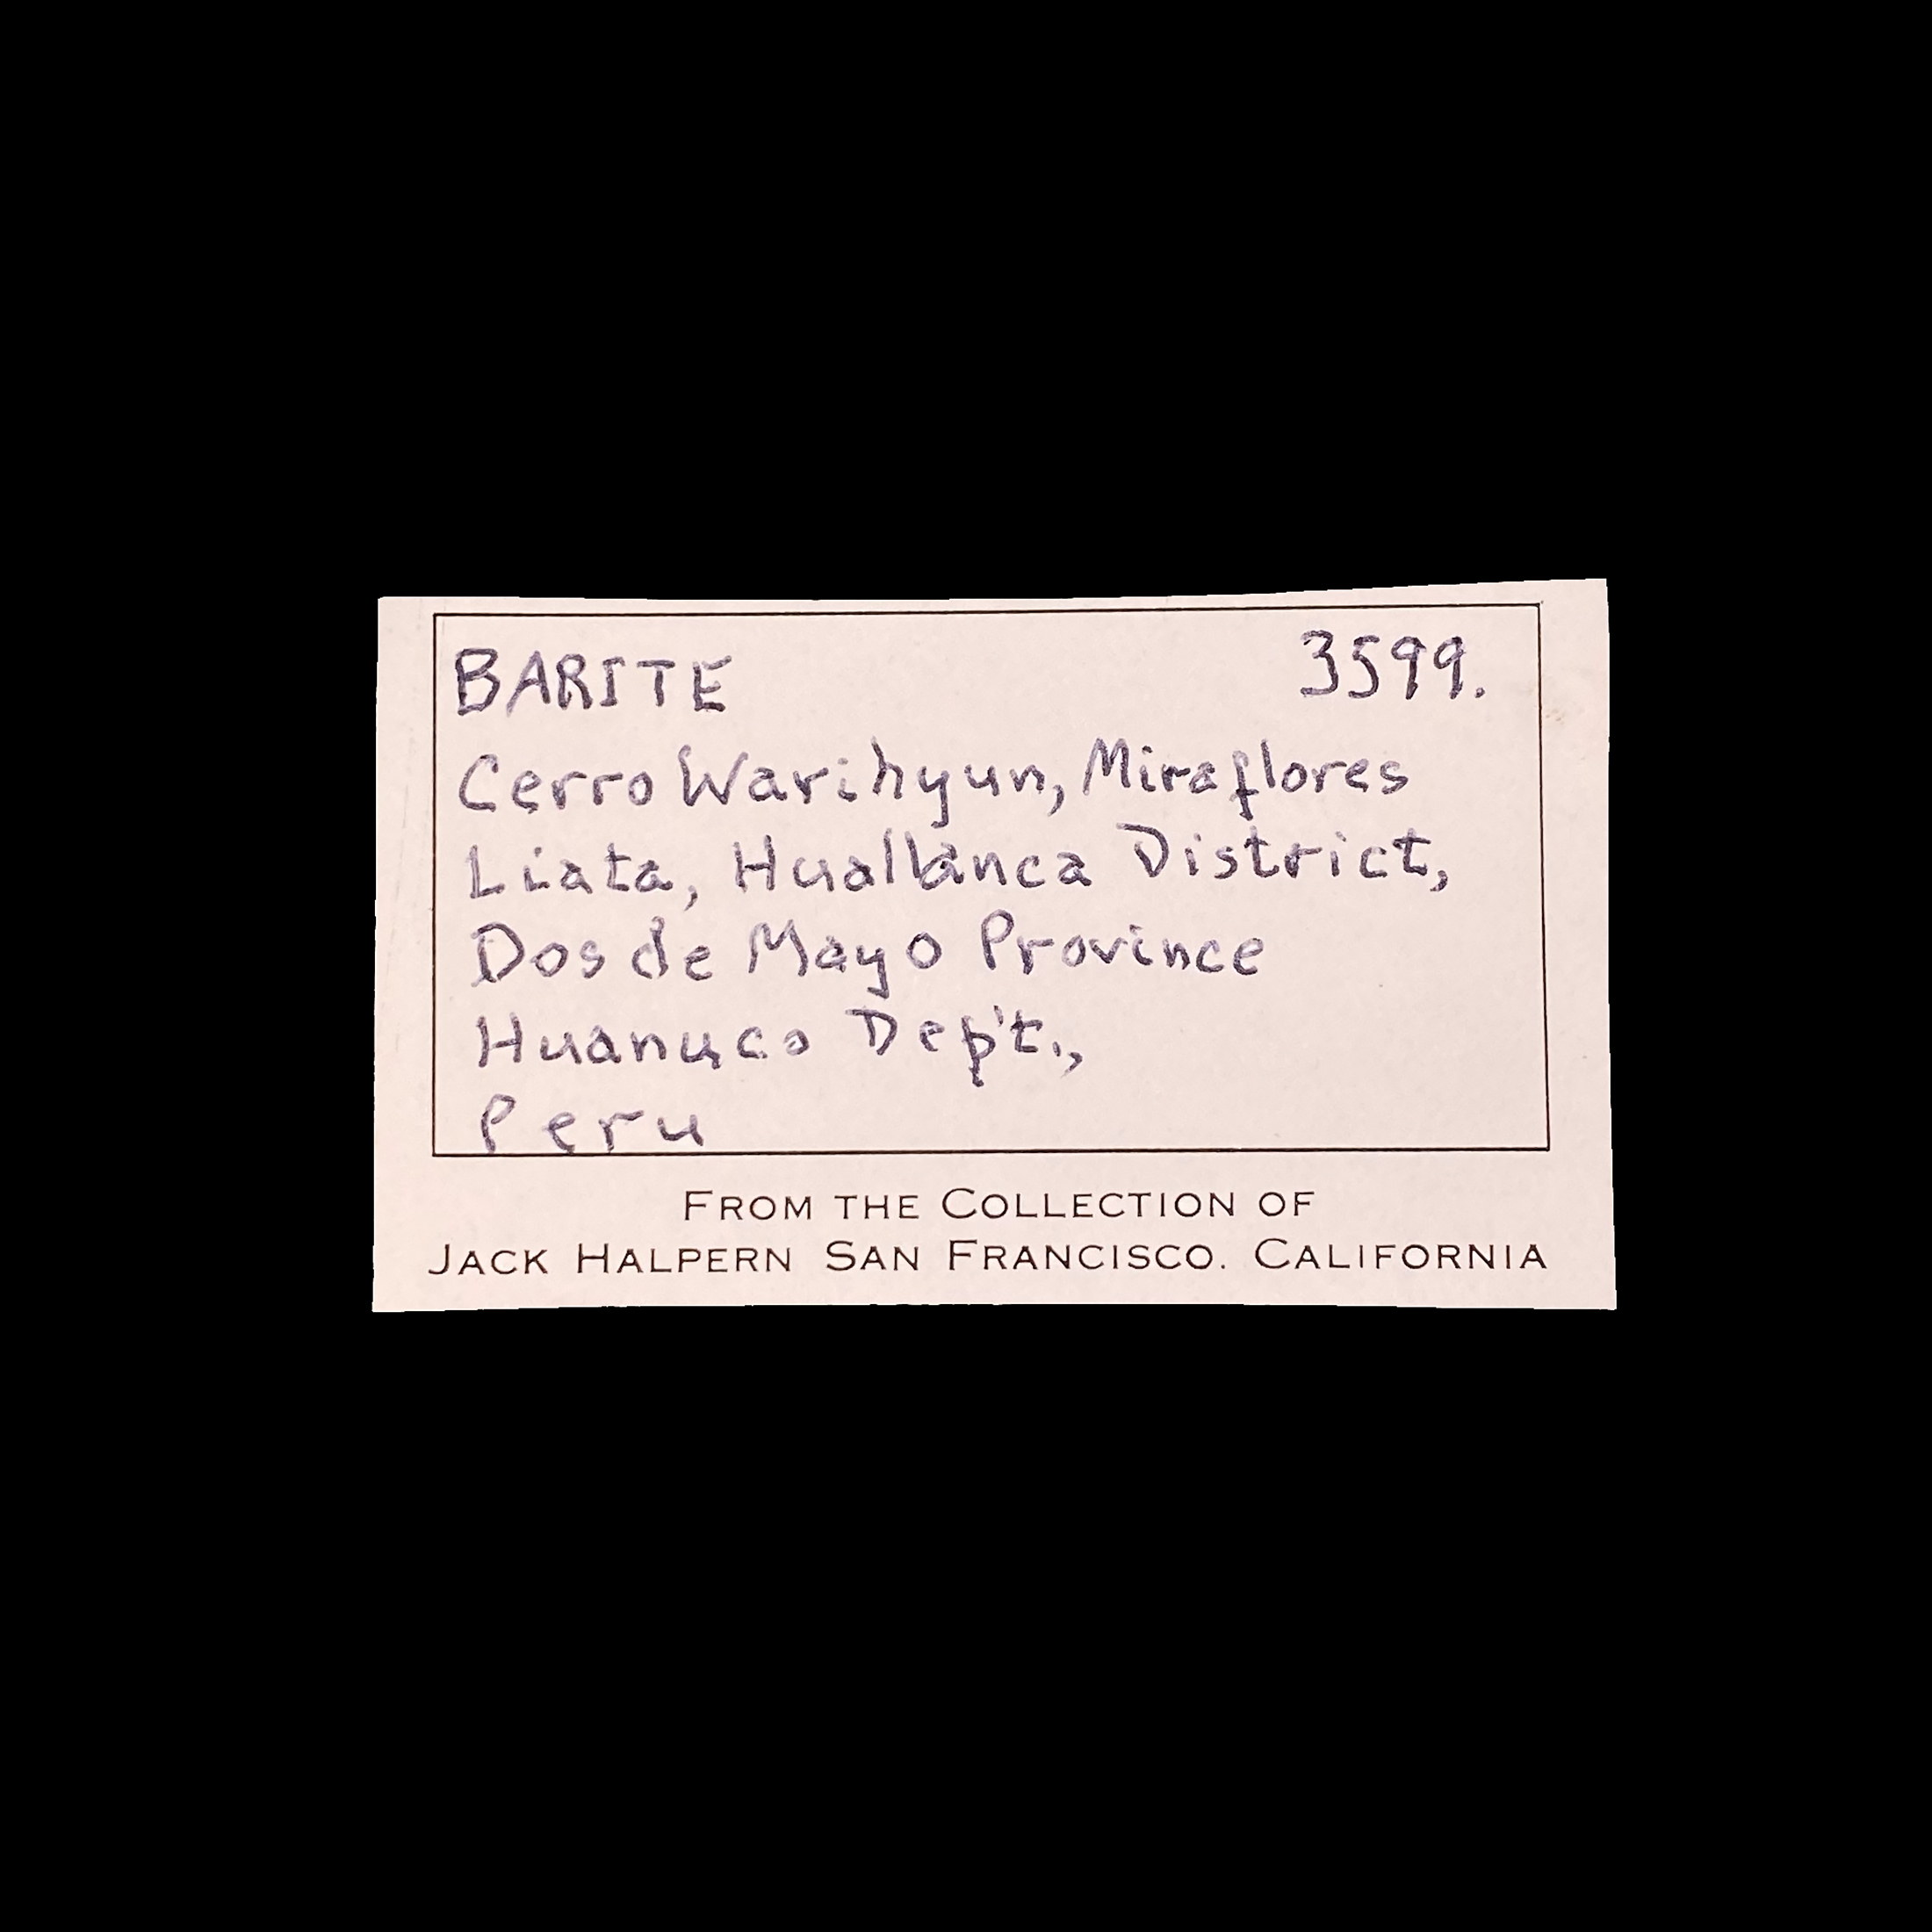 BARITE 3599.
Cerro Warihyun, Miraflores
Liata, Huallanca District,
Dos de Mayo Province
Huanuco Dep't.,
Peru
FROM THE COLLECTION OF
JACK HALPERN SAN FRANCISCO. CALIFORNIA